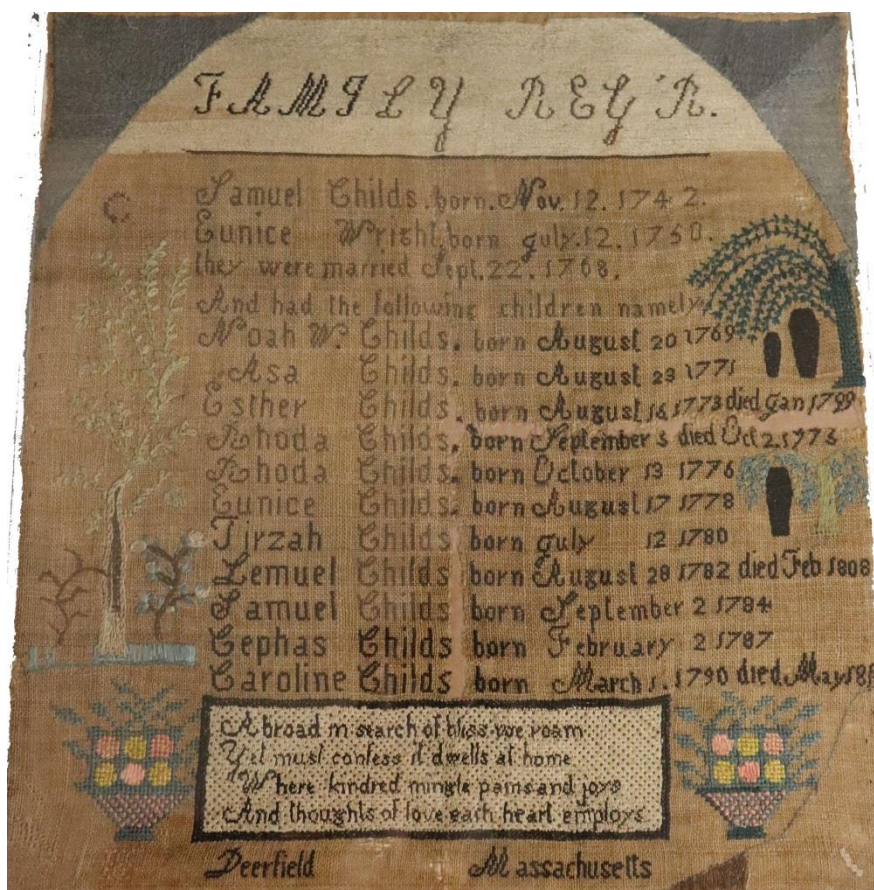 FAMILY REG'R.
Samuel Childs. born. Nov. 12. 1742.
Eunice Wright. born July. 12. 1750.
they were married Sept. 22. 1768.
And had the following children namely
Noah W. Childs. born August 20 1769
Asa Childs. born August 23 1771
Esther Childs. born August 16 1773 died Jan 1799
Rhoda Childs. born September 5 died Oct 2. 1775
Rhoda Childs. born October 13 1776
Eunice Childs. born August 17 1778
Tirzah Childs born July 12 1780
Lemuel Childs born August 28 1782 died Feb 1808
Samuel Childs born September 2 1784
Cephas Childs born February 2 1787
Caroline Childs born March 1. 1790 died May
Abroad in search of bliss we roam
Yet must confess it dwells at home
Where kindred mingle pains and joys
And thoughts of love each heart employs
Deerfield Massachusetts